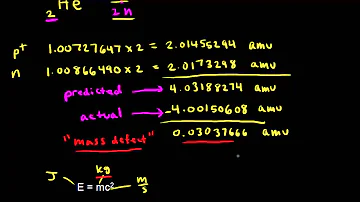 2 He 2n
p+ 1.00727647 x 2 = 2.01455294 amu
n 1.00866490 x 2 = 2.0173298 amu
predicted 4.03188274 amu
actual -4.00150608 amu
"mass defect" 0.03037666 amu
kg
J E = mc² m/s